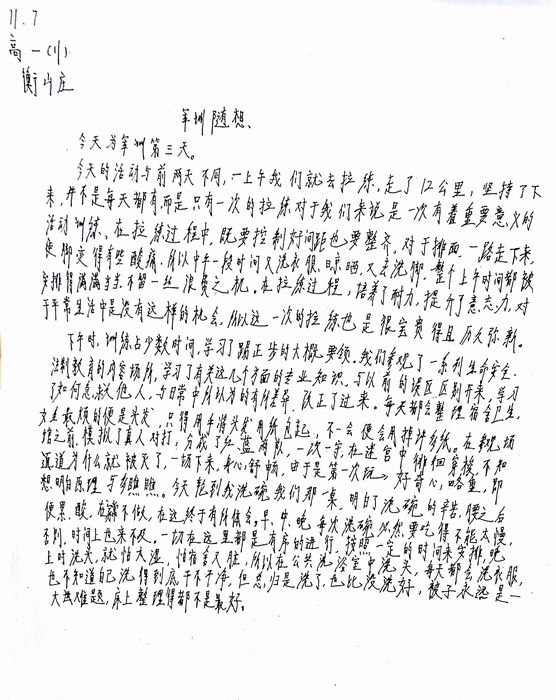 11.7
高一(1)
衡山庄
军训随想、
今天为军训第三天。
今天的活动与前两天不同,一上午我们就去拉练,走了12公里,坚持了下
来,并不是每天都有而是只有一次的拉练对于我们来说是一次有着重要意义的
活动训练。在拉练过程中,既要控制好间距也要整齐,对于排面,一路走下来,
使脚变得有些酸痛,所以中午一段时间又洗衣服、晾晒,又去洗脚,整个上午时间都被
安排得满满当当,不留一丝浪费之机。在拉练过程,培养了耐力,提升了意志力,对
于平常生活中是没有这样的机会,所以这一次的拉练也是很宝贵得且历久弥新。
下午时,训练占少数时间,学习了踢正步的大概要领,我们参观了一系列生命安全、
法制教育的内容场所,学习了有关这几个方面的专业知识,与以前的误区区别开来,学习
了如何急救他人,与日常中所认为的有所差异,改正了过来。每天都会整理宿舍卫生,
其最烦的便是头发,只得用手将头发用纸包起,不一会便会用掉许多纸。在
馆之前,模拟了真人对打,分成了红蓝两队,一次一穿在迷宫中徘徊穿梭,不知
道为什么就被灭了,一场下来,身心舒畅,由于是第一次玩,好奇心略重,即
想明白原理与多瞧瞧。今天轮到我洗碗我们那一桌,明白了洗碗的辛苦,
便累,酸,在都不做,在这终于有所体会。早、中、晚,每次洗碗必然要吃得不能太慢,
不则,时间上也来不及,一切在这里都是有序的进行,按照一定的时间来安排,晚
上时洗头,就怕太湿,怕宿舍又脏,所以在公共洗浴室中洗头,每天都会洗衣服,
也不知道自己洗得到底干不干净,但总归是洗了,也比没洗好,被子永远是一
大难题,床上整理得都不是最好。